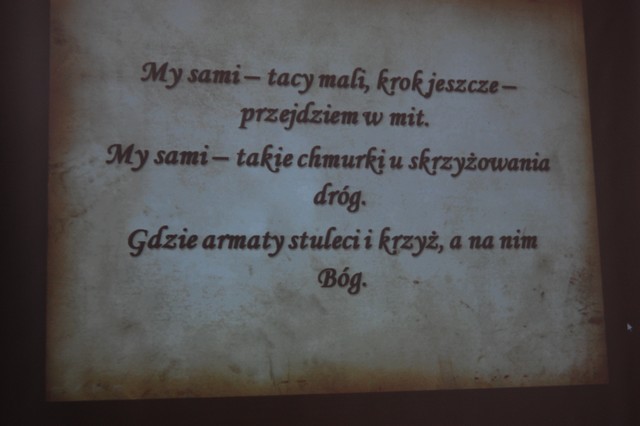 My sami – tacy mali, krok jeszcze –
przejdziem w mit.
My sami – takie chmurki u skrzyżowania
dróg.
Gdzie armaty stuleci i krzyż, a na nim
Bóg.